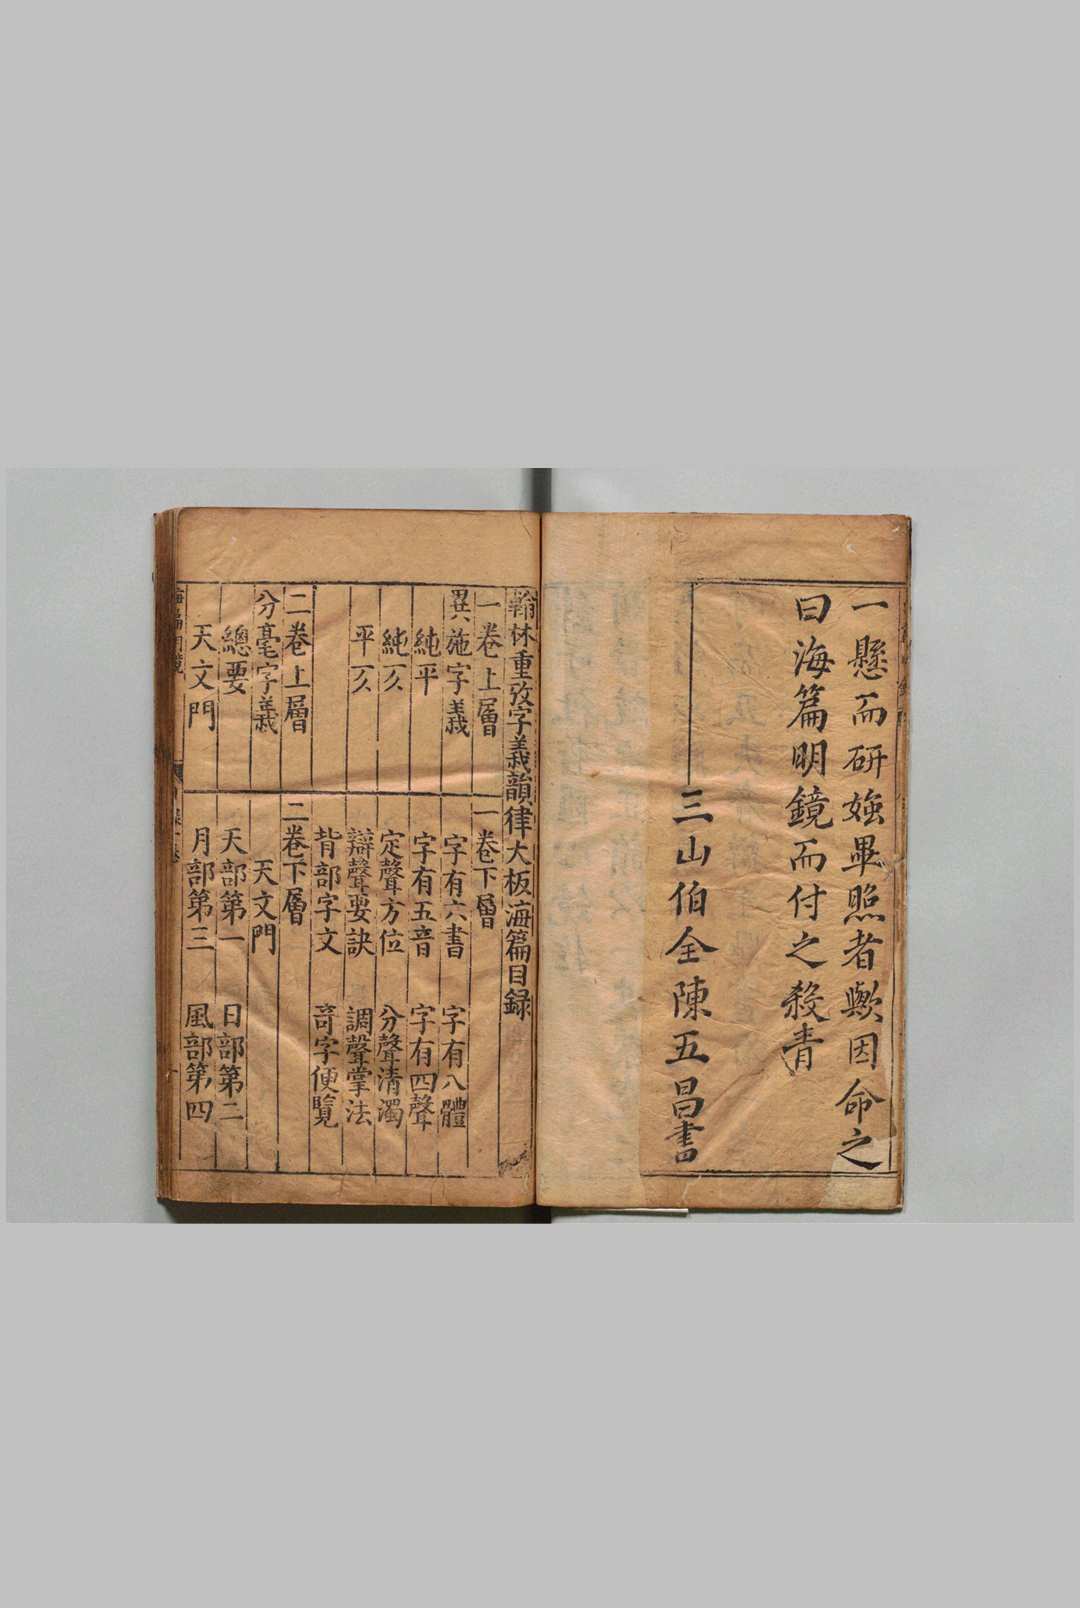 一懸而研媸畢照者歟因命之
曰海篇明鏡而付之殺青
三山伯全陳五昌書
翰林重攷字義韻律大板海篇目録
一卷上層
異施字義
純平
純仄
平仄
一卷下層
字有六書 字有八體
字有五音 字有四聲
定聲方位 分聲清濁
辯聲要訣 調聲掌法
背部字文 竒字便覽
二卷上層
分毫字義
總要
天文門
二卷下層
天文門
天部第一 日部第二
月部第三 風部第四